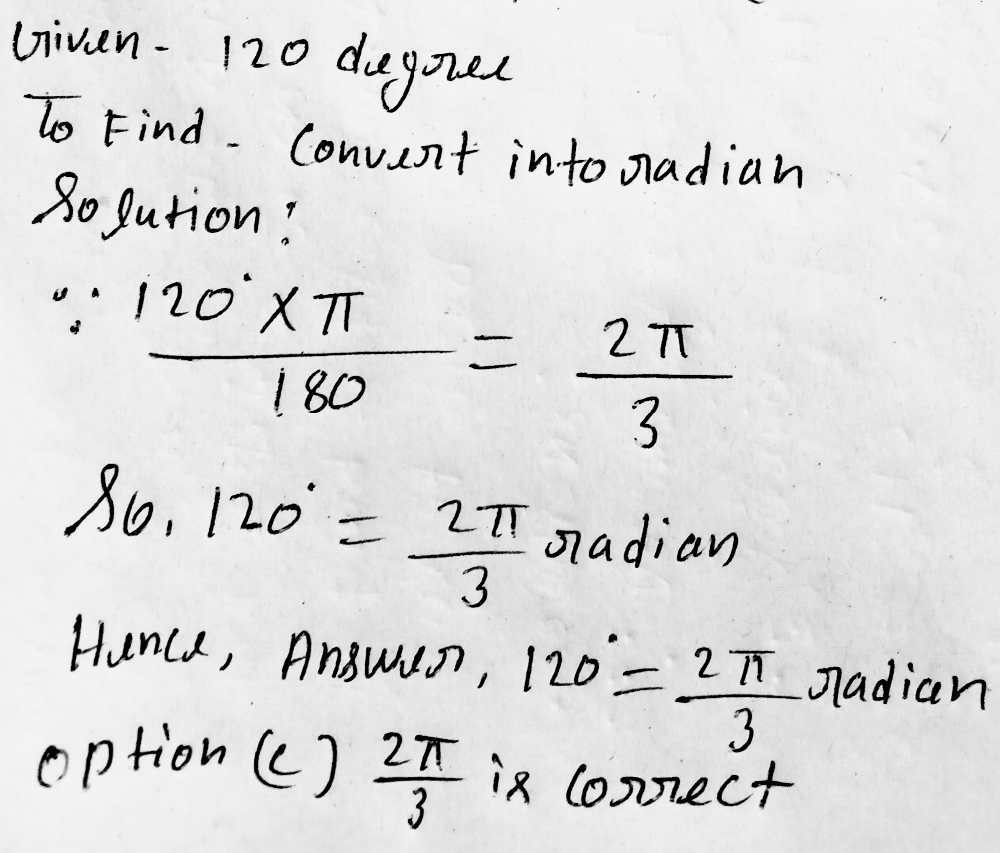 Given - 120 degree
To Find - Convert into radian
Solution:
∵ 120° × π / 180 = 2π / 3
So, 120° = 2π / 3 radian
Hence, Answer, 120° = 2π / 3 radian
option (c) 2π / 3 is correct